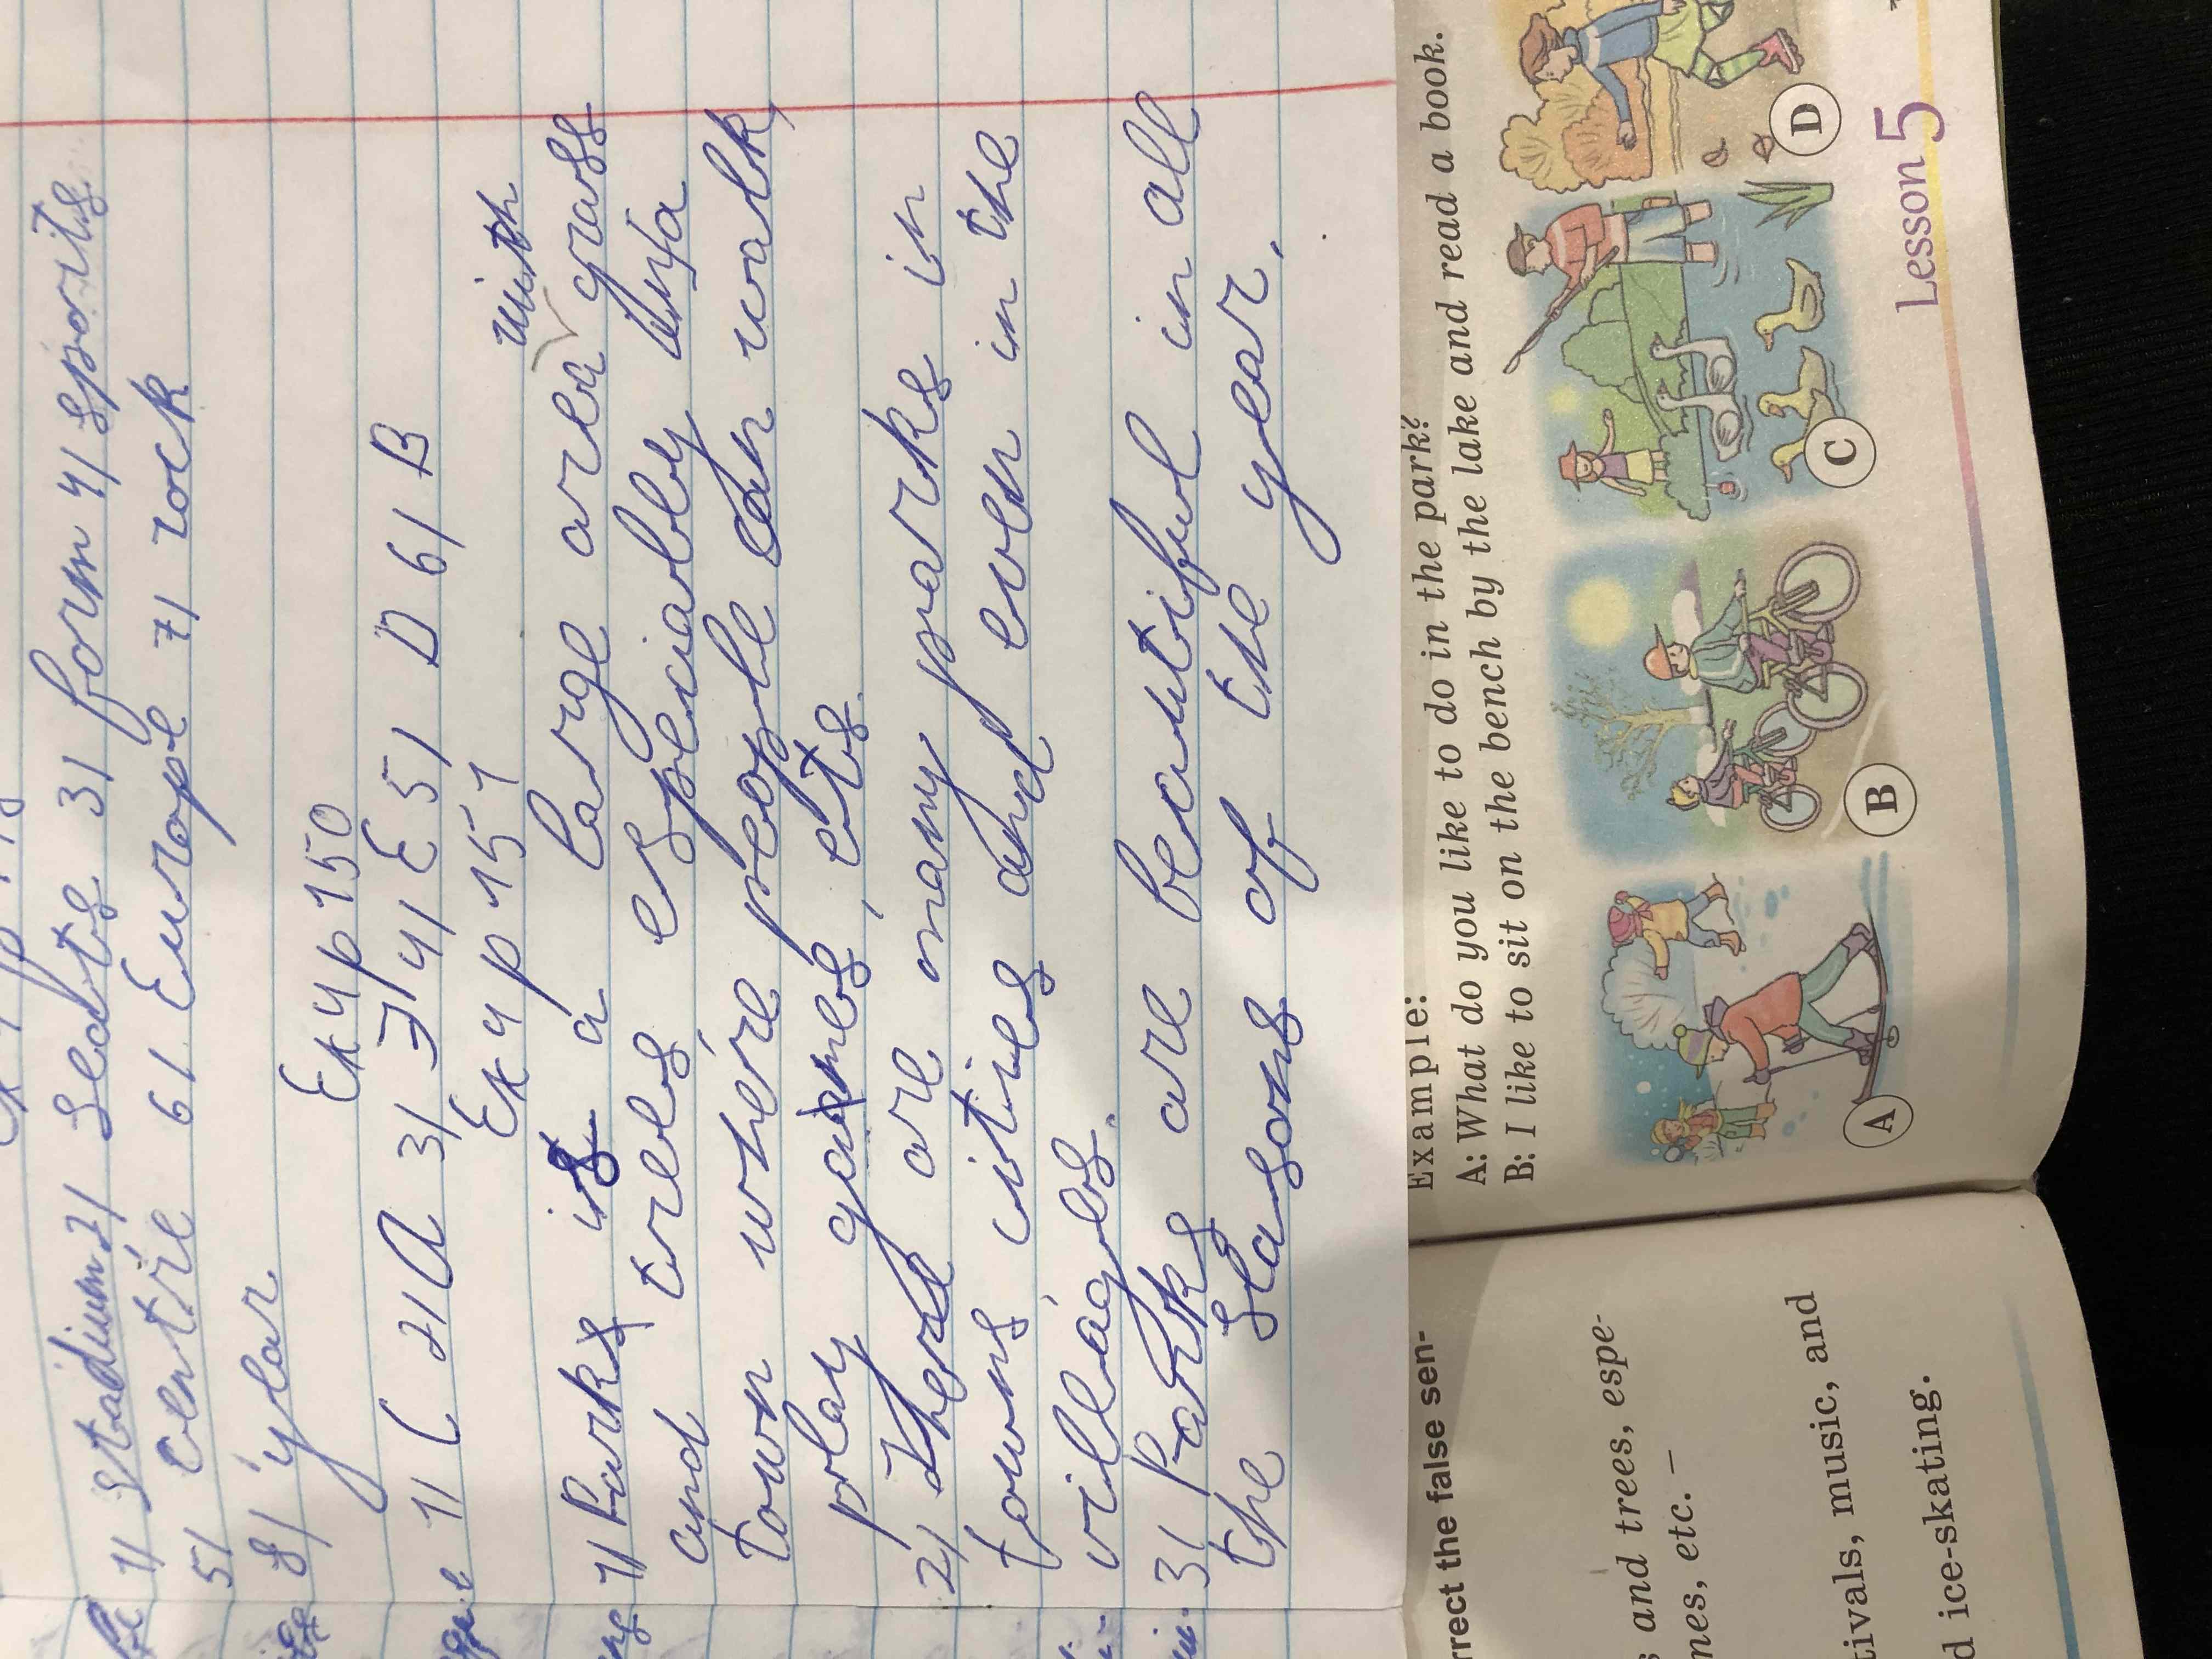 1) stadium 2) seats 3) form 4) sports
5) centre 6) Europe 7) rock
8) year
Ex 4 p 150
1) C 2) A 3) F 4) E 5) D 6) B
Ex 4 p 151
with
1) Parks is a large area grass
and trees, especiably in a
town where people can walk,
play games, ets.
2) There are many parks in
towns, cities and even in the
villages.
3) Parks are beautiful in all
the seasons of the year.
rrect the false sen-
s and trees, espe-
mes, etc. –
tivals, music, and
d ice-skating.
Example:
A: What do you like to do in the park?
B: I like to sit on the bench by the lake and read a book.
A
B
C
D
Lesson 5